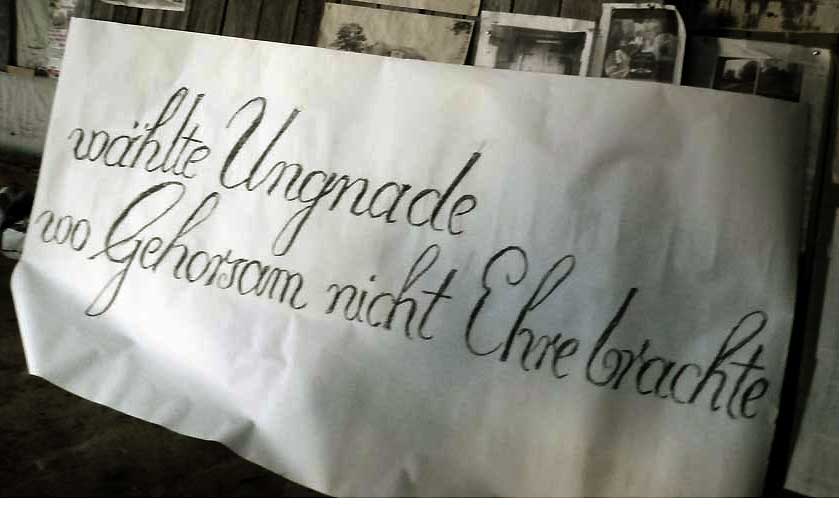 wählte Ungnade
wo Gehorsam nicht Ehre brachte